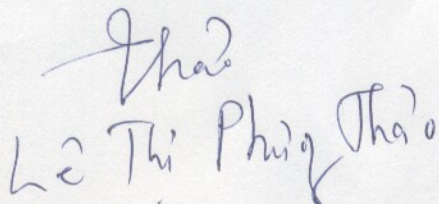 Thảo
Lê Thị Phùng Thảo